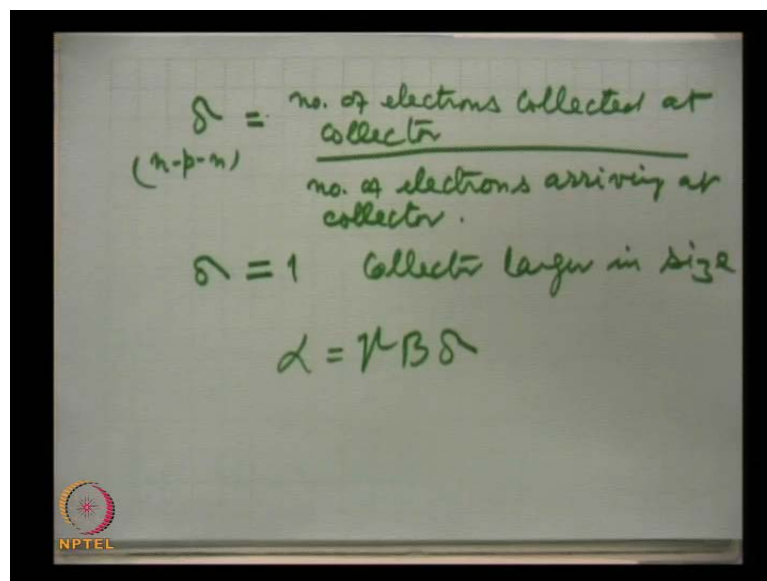 δ = no. of electrons collected at
collector
(n-p-n)
no. of electrons arriving at
collector.
δ = 1 Collector larger in size
α = γ B δ
NPTEL